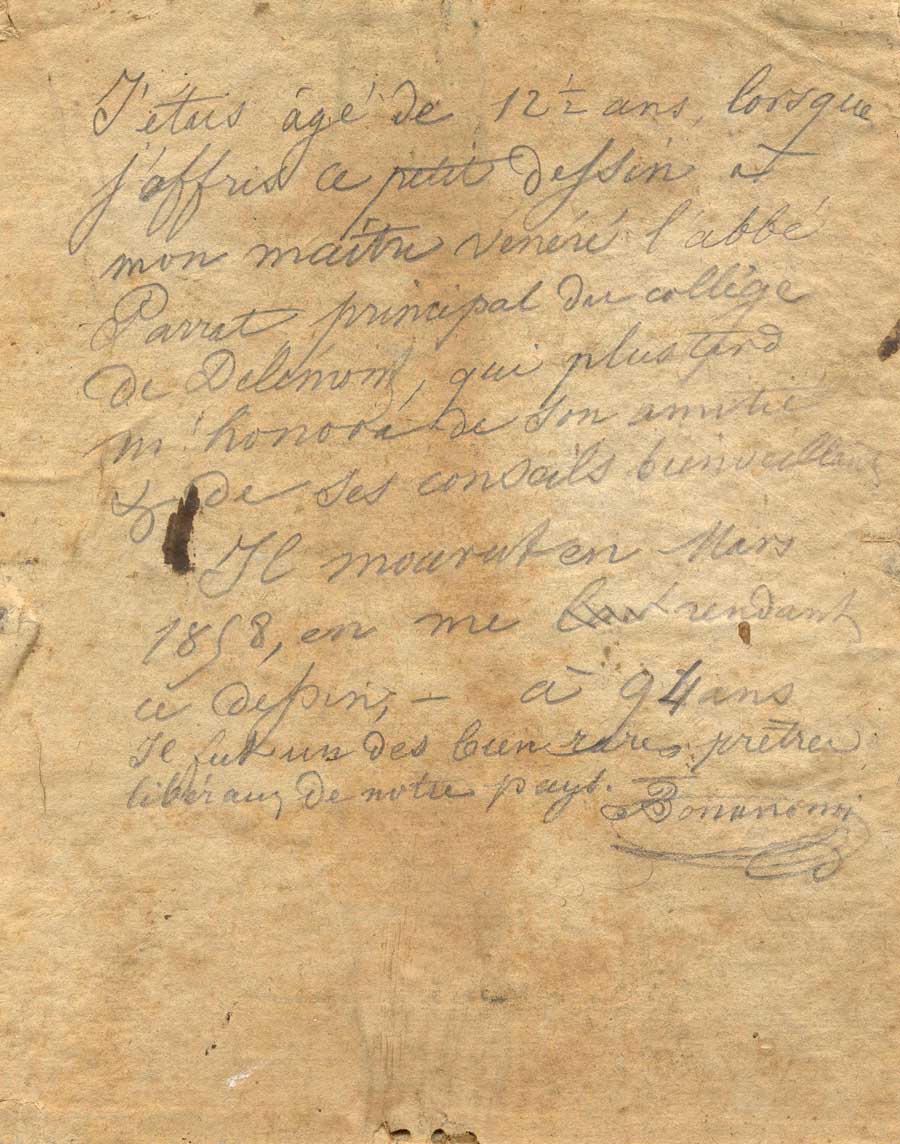 J'étais âgé de 12 ½ ans, lorsque
j'offris ce petit dessin à
mon maître vénéré l'abbé
Parrat principal du collège
de Delémont, qui plus tard
m'honora de son amitié
& de ses conseils bienveillans
Il mourut en Mars
1858, en me rendant
ce dessin, – à 94 ans
Il fut un des bien rares prêtres
libéraux de notre pays.
Bonanomi